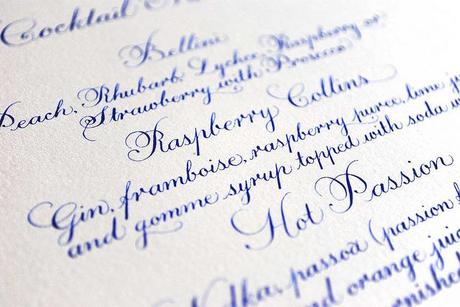 Cocktail
Bellini
Peach, Rhubarb, Lychee, Raspberry or
Strawberry with Prosecco
Raspberry Collins
Gin, framboise, raspberry puree, lime
and gomme syrup topped with soda
Hot Passion
passoa (passion
orange